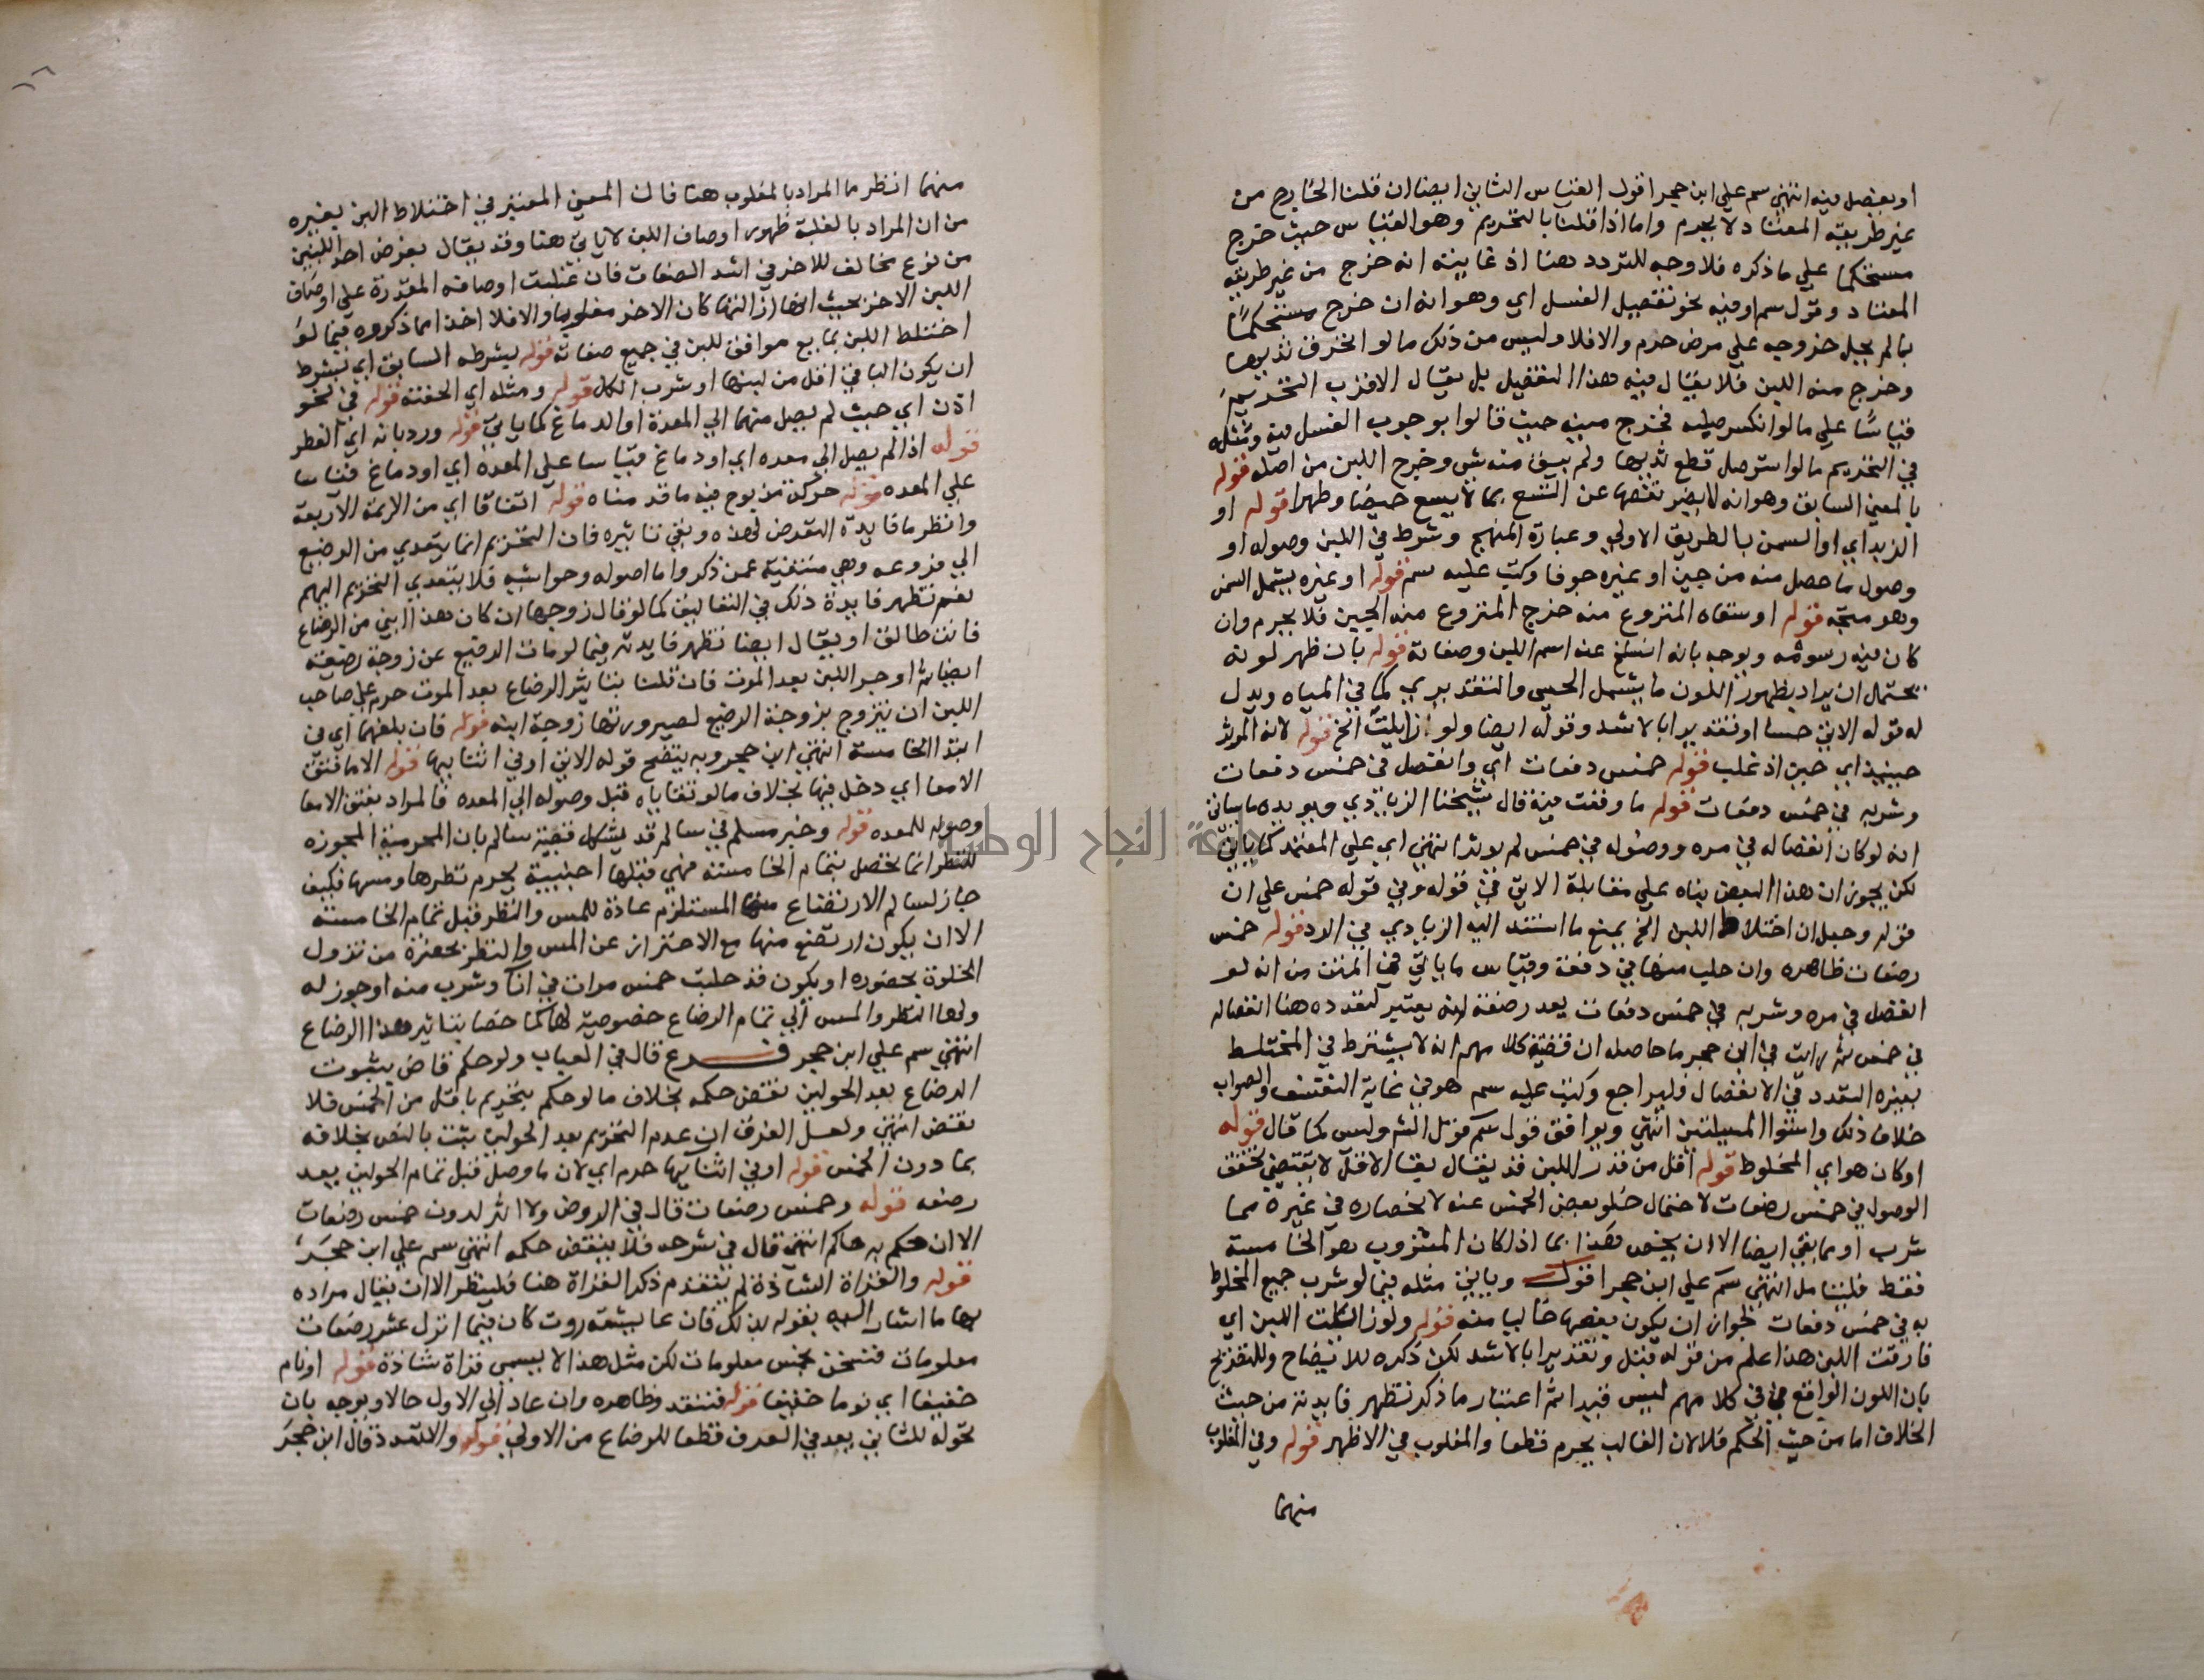 او يفصل فيه انتهى سم على ابن حجر اقول القياس الثاني ايضا ان قلنا الخارج من
غير طريقه المعتاد لا يحرم واما اذا قلنا بالتحريم وهو القياس حيث خرج
مستحكما على ما ذكره فلا وجه للتردد هنا اذ غايته انه خرج من غير طريقه
المعتاد وقول سم او فيه نحو تفصيل الغسل اي وهو انه ان خرج مستحكما
بالم يحل خروجه على مرض حرم والا فلا وليس من ذلك ما لو انخرق ثديها
وخرج منه اللبن فلا يقال فيه هذا التفصيل بل يقال الاقرب التحريم
قياسا على ما لو انكسر صلبه فخرج منيه حيث قالوا بوجوب الغسل فيه ومثله
في التحريم ما لو استوصل قطع ثديها ولم يبق منه شي وخرج اللبن من اصله قوله
بالمعنى السابق وهو انه لا يضر نقصها عن التسع بما لا يسع حيضا وطهرا قوله او
الزبد اي او السمن بالطريق الاولى وعبارة المنهج وشرط في اللبن وصوله او
وصول ما حصل منه من جبن او غيره جوفا وكتب عليه سم قوله او غيره يشمل السمن
وهو متجه قوله او سقاه المنزوع منه خرج المنزوع منه الجبن فلا يحرم وان
كان فيه رسومه ويوجه بانه انسلخ عنه اسم اللبن وصفاته قوله بان ظهر لونه
يحتمل ان يراد بظهور اللون ما يشمل الحسي والتقديري كما في المياه ويدل
له قوله الاتي حسا او تقديرا بالاشد وقوله ايضا ولو زايلت الخ قوله لانه الموثر
حينيذ اي حين اذ غلب قوله خمس دفعات اي وانفصل في خمس دفعات
وشربه في خمس دفعات قوله ما وقعت فيه قال شيخنا الزيادي ويويده ما ياتي
انه لو كان انفصاله في مره ووصوله في خمس لم يوثر انتهى اي على المعتمد كما ياتي
لكن يجوز ان هذا البعض بناه على مقابلة الاتي في قوله وفي قوله خمس على ان
قوله وحيل ان اختلاط اللبن الخ يمنع ما استند اليه الزيادي في الرد قوله خمس
رضعات ظاهره وان حلب منها في دفعة وقياس ما ياتي في المتن من انه لو
انفصل في مره وشربه في خمس دفعات يعد رضعة انه يعتبر لتعدده هنا انفصاله
في خمس ثم رايت في ابن حجر ما حاصله ان قضية كلامهم انه لا يشترط في المختلط
بغيره التعدد في الانفصال فليراجع وكتب عليه سم هو في غاية التعسف والصواب
خلاف ذلك واستوا المسيلتين انتهى ويوافق قول سم قول الش وليس كما قال قوله
او كان هو اي المخلوط قوله اقل من قدر اللبن قد يقال بقا الاقل لا يقتضي تحقق
الوصول في خمس رضعات لاحتمال خلو بعض الخمس عنه لانحصاره في غيره مما
شرب او مما بقي ايضا الا ان يخص هذا بما اذا كان المشروب هو الخامسة
فقط فليتامل انتهى سم على ابن حجر اقول وياتي مثله فيما لو شرب جميع المخلوط
به في خمس دفعات لجواز ان يكون بعضها خاليا منه قوله ولو زايلت اللبن اي
فارقت اللبن هذا علم من قوله قبل وتقديرا بالاشد لكن ذكره للايضاح وللتقريح
بان اللون الواقع في كلامهم ليس قيدا ثم اعتبار ما ذكر تظهر فايدته من حيث
الخلاف اما من حيث الحكم فلا لان الغالب يحرم قطعا والمغلوب في الاظهر قوله وفي المغلوب
منهما
منهما انظر ما المراد بالمغلوب هنا فان المعنى المعتبر في اختلاط اللبن بغيره
من ان المراد بالغلبة ظهور اوصاف اللبن لا ياتي هنا وقد يقال يعرض احد اللبنين
من نوع مخالف للاخر في اشد الصفات فان غلبت اوصافه المقدرة على اوصاف
اللبن الاخر بحيث ازالتها كان الاخر مغلوبا والا فلا اخذا مما ذكروه فيما لو
اختلط اللبن بمايع موافق للبن في جميع صفاته قوله بشرطه السابق اي بشرط
ان يكون الباقي اقل من لبنها او شرب الكل قوله ومثله اي الحقنة قوله في نحو
اذن اي حيث لم يصل منهما الى المعدة او الدماغ كما ياتي قوله ورد بانه اي الفطر
قوله اذا لم يصل الى معده اي او دماغ قياسا على المعدة اي او دماغ قياسا
على المعده قوله حركة مذبوح فيه ما قدمناه قوله اتفاقا اي من الايمة الاربعة
وانظر ما فايدة التعرض لهذه ونفي تاثيره فان التحريم انما يتعدي من الرضيع
الى فروعه وهي منتفية عمن ذكر واما اصوله وحواشيه فلا يتعدي التحريم اليهم
نعم تظهر فايدة ذلك في التعاليق كما لو قال زوجها ان كان هذا ابني من الرضاع
فانت طالق او يقال ايضا تظهر فايدته فيما لو مات الرضيع عن زوجة رضيعة
ايضا ثم اوجر اللبن بعد الموت فان قلنا بتاثير الرضاع بعد الموت حرم على صاحب
اللبن ان يتزوج بزوجة الرضيع لصيرورتها زوجة ابنه قوله فان بلغهما اي في
ابتدا الخامسة انتهى ابن حجر وبه يتضح قوله الاتي او في اثنايها قوله الا ما فتق
الامعا اي دخل فيها بخلاف ما لو تقاياه قبل وصوله الى المعده فالمراد بفتق الامعا
وصوله للمعده قوله وخبر مسلم في سالم قد يشكل قضية سالم بان المحرمية المجوزه
للنظر انما تحصل بتمام الخامسة فهي قبلها اجنبية يحرم نظرها ومسها فكيف
جاز لسالم الارتضاع منها المستلزم عادة للمس والنظر قبل تمام الخامسه
الا ان يكون ارتضع منها مع الاحتراز عن المس والنظر بحضرة من تزول
الخلوة بحضوره او يكون قد حلبت خمس مرات في انآ وشرب منه او جوز له
ولها النظر والمس الى تمام الرضاع خصوصية لهما كما خصا بتاثير هذا الرضاع
انتهى سم على ابن حجر فرع قال في العباب ولو حكم قاض بثبوت
الرضاع بعد الحولين نقض حكمه بخلاف ما لو حكم بتحريم باقل من الخمس فلا
نقض انتهى ولعل الفرق ان عدم التحريم بعد الحولين ثبت بالنص بخلافه
بما دون الخمس قوله او في اثنايها حرم اي لان ما وصل قبل تمام الحولين يعد
رضعه قوله وخمس رضعات قال في الروض ولا اثر لدون خمس رضعات
الا ان حكم به حاكم انتهى قال في شرحه فلا ينقض حكمه انتهى سم على ابن حجر
قوله والقراة الشاذة لم يتقدم ذكر القراة هنا فلينظر الا ان يقال مراده
بها ما اشار اليه بقوله لذلك فان عايشة روت كان فيما انزل عشر رضعات
معلومات فنسخن بخمس معلومات لكن مثل هذا لا يسمى قراة شاذة قوله او نام
خفيفا اي نوما خفيفا قوله فتتعدد وظاهره وان عاد الى الاول حالا ويوجه بان
تحوله للثاني يعد في العرف قطعا للرضاع من الاولى قوله والا تعدد قال ابن حجر